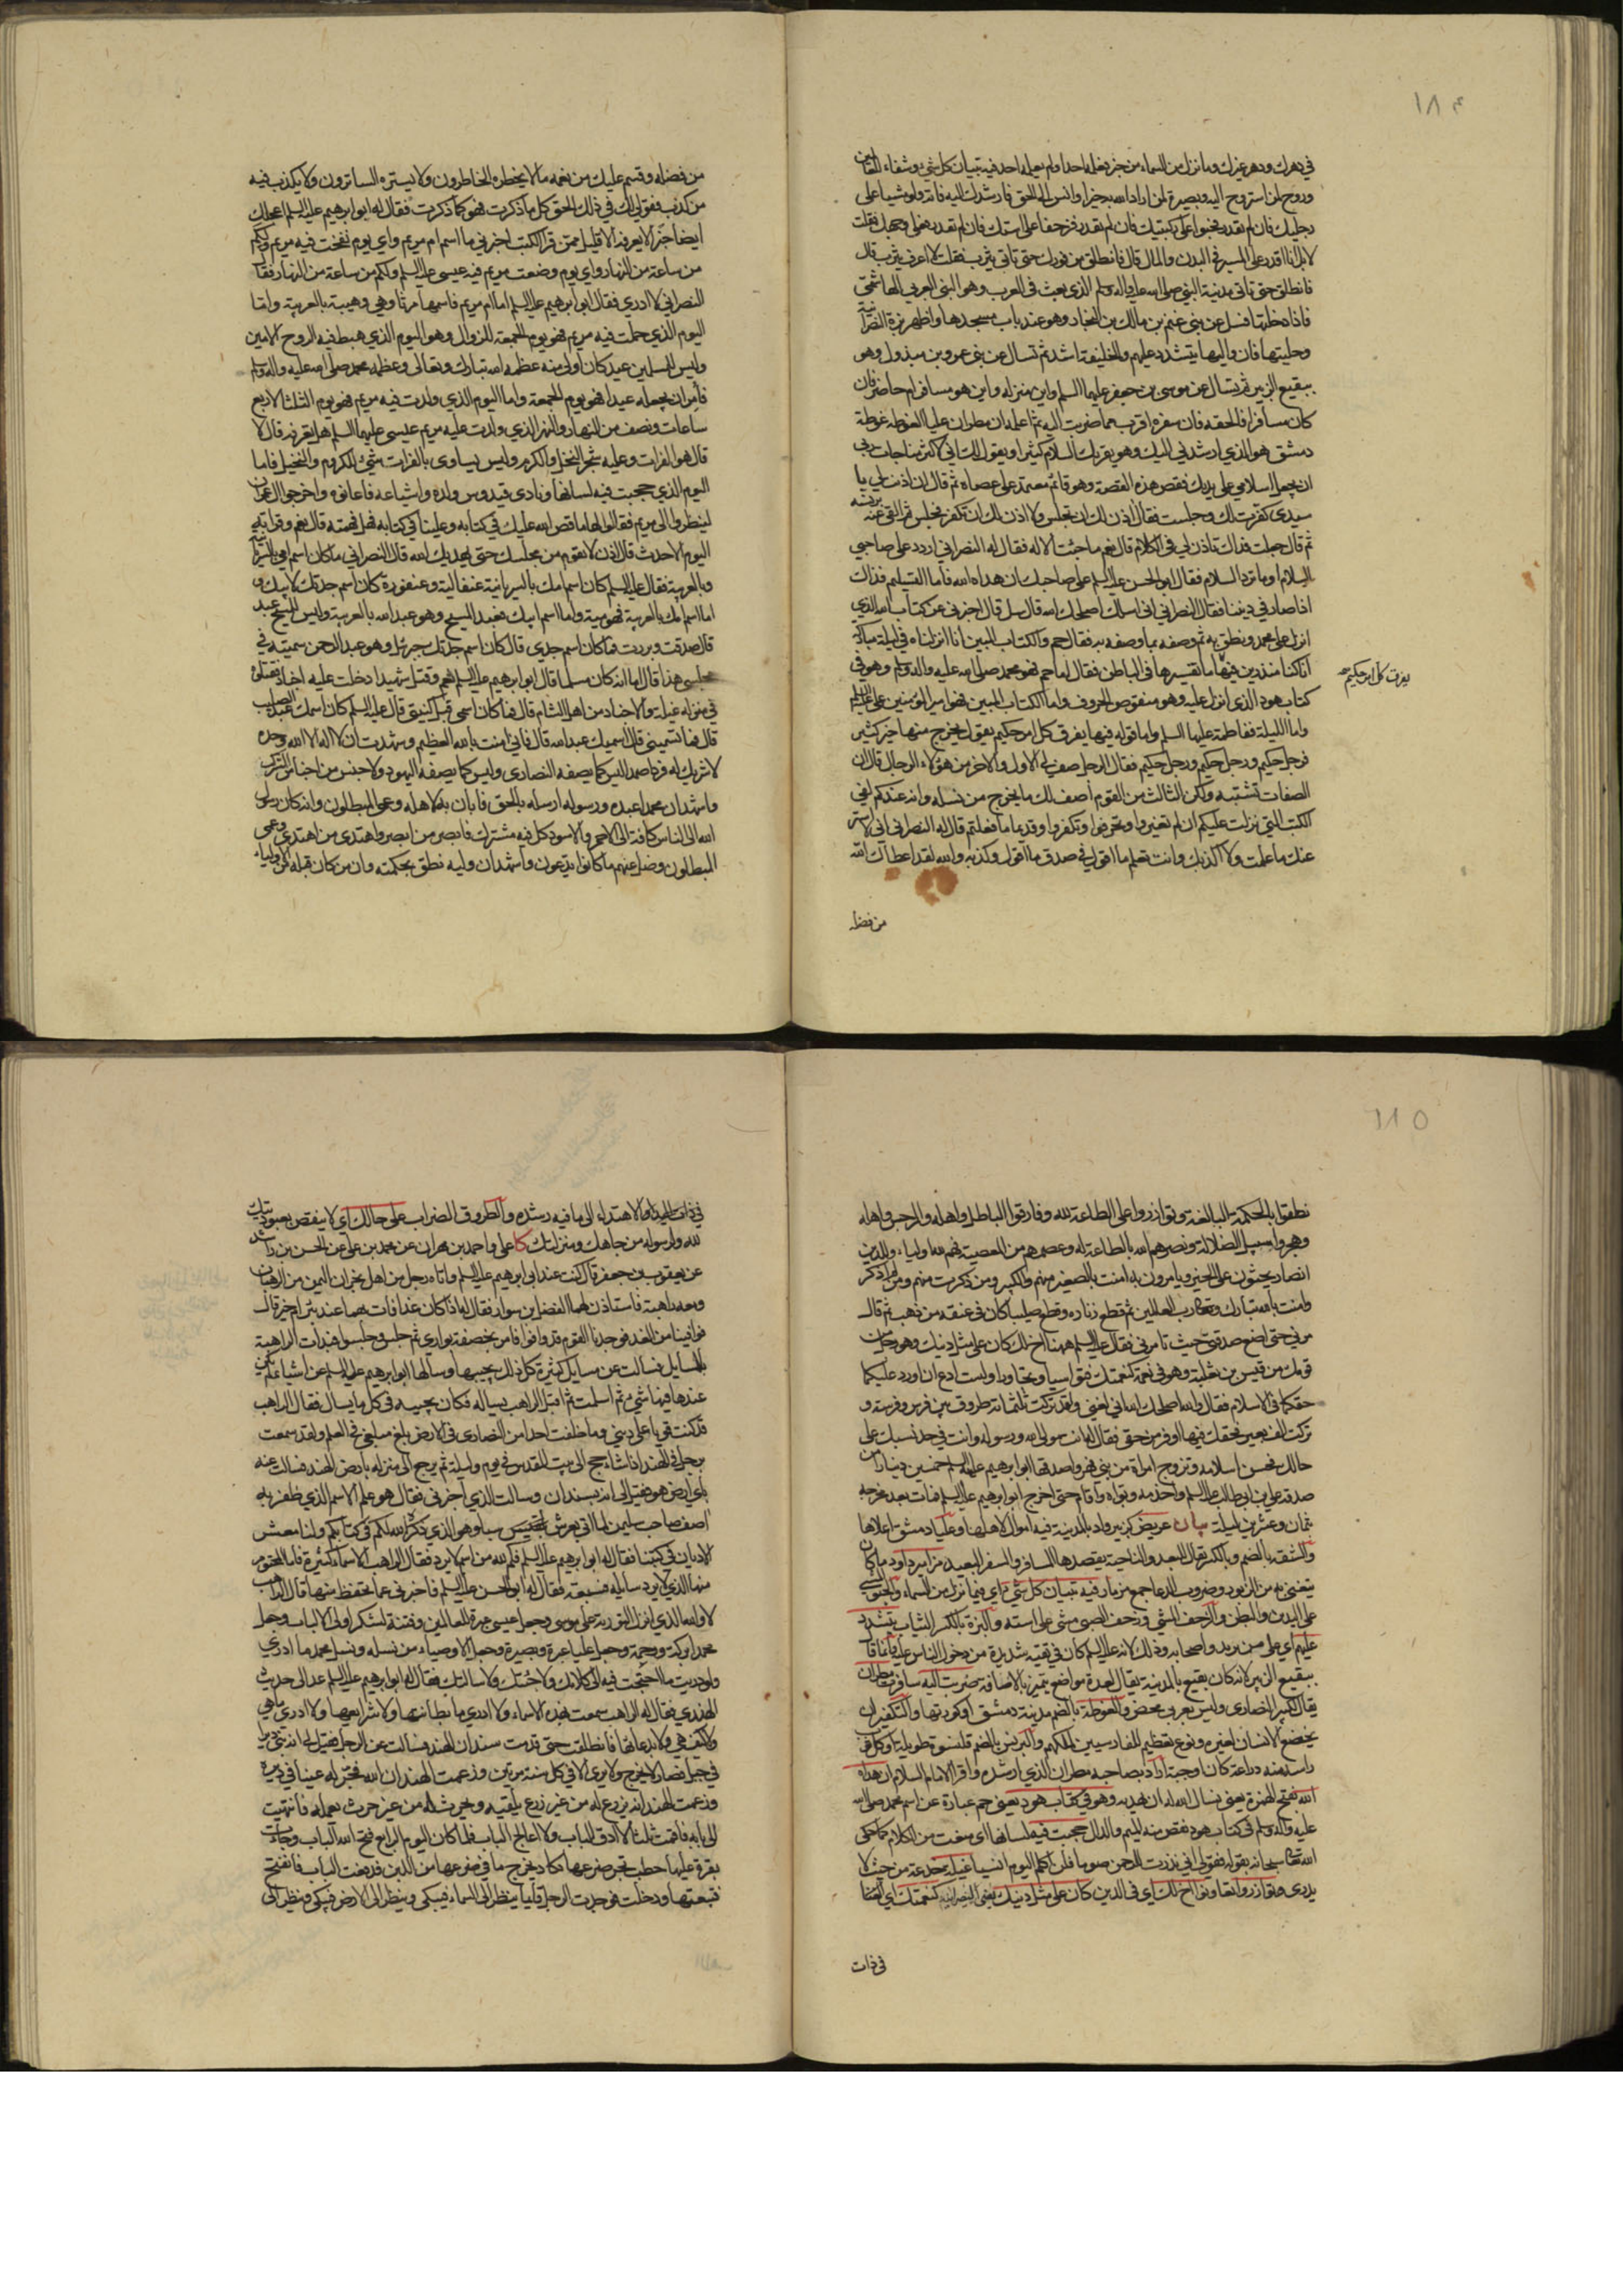 ١٨٤
في دهرك ودهر غيرك وما نزل من السماء من خبر فعلمه احد اولم يعلم به احد فيه تبيان كل شئ وشفاء للعالمين
وروح لمن استروح اليه وبصيرة لمن اراد الله به خيرا وانس الى الحق فارشدك اليه فاته ولو مشيا على
رجليك فان لم تقدر فحبوا على ركبتيك فان لم تقدر فزحفا على استك فان لم تقدر فعلى وجهك فقلت
لا بل انا اقدر على المسير في البدن والمال قال فانطلق من فورك حتى تاتي يثرب فقلت لا اعرف يثرب قال
فانطلق حتى تاتي مدينة النبي صلى الله عليه واله وسلم الذي بعث في العرب وهو النبي العربي الهاشمي
فاذا دخلتها فسل عن بني غنم بن مالك بن النجار وهو عند باب مسجدها واظهر بزة النصرانية
وحليتها فان واليها يتشدد عليهم والخليفة اشد ثم تسال عن بني عمرو بن مبذول وهو
ببقيع الزبير ثم تسال عن موسى بن جعفر عليهما السلم واين منزله واين هو مسافر ام حاضر فان
كان مسافرا فالحقه فان سفره اقرب مما ضربت اليه ثم اعلمه ان مطران عليا الغوطة غوطة
دمشق هو الذي ارشدني اليك وهو يقرئك السلام كثيرا ويقول لك اني لاكثر مناجات ربي
ان يجعل اسلامي على يديك فقص هذه القصة وهو قائم معتمد على عصاه ثم قال ان اذنت لي يا
سيدي كفرت لك وجلست فقال اذن لك ان تجلس ولا اذن لك ان تكفر فجلس ثم القى عنه برنسه
ثم قال جعلت فداك تاذن لي في الكلام قال نعم ما جئت الا له فقال له النصراني اردد على صاحبي
السلام او ما ترد السلام فقال ابو الحسن عليه السلم على صاحبك ان هداه الله فاما التسليم فذاك
اذا صار في ديننا فقال النصراني اني اسالك اصلحك الله قال سل قال اخبرني عن كتاب الله الذي
انزل على محمد ونطق به ثم وصفه بما وصفه به فقال حم والكتاب المبين انا انزلناه في ليلة مباركة
انا كنا منذرين فيها ما تفسيرها في الباطن فقال اما حم فهو محمد صلى الله عليه واله وسلم وهو في
يفرق كل امر حكيم صح
كتاب هود الذي انزل عليه وهو منقوص الحروف واما الكتاب المبين فهو امير المؤمنين علي عليه السلم
واما الليلة ففاطمة عليها السلم واما قوله فيها يفرق كل امر حكيم يقول يخرج منها خير كثير
فرجل حكيم ورجل حكيم ورجل حكيم فقال الرجل صف لي الاول والاخر من هؤلاء الرجال قال ان
الصفات تشتبه ولكن الثالث من القوم اصف لك ما يخرج من نسله وانه عندكم لفي
الكتب التي نزلت عليكم ان لم تغيروا وتحرفوا وتكفروا وقديما ما فعلتم قال له النصراني اني لا استر
عنك ما علمت ولا اكذبك وانت تعلم ما اقول في صدق ما اقول وكذبه والله لقد اعطاك الله
من فضله
من فضله وقسم عليك من نعمه ما لا يخطره الخاطرون ولا يستره الساترون ولا يكذب فيه
من كذب فقولي لك في ذلك الحق كل ما ذكرت فهو كما ذكرت فقال له ابو ابرهيم عليه السلم اعجلك
ايضا خبرا لا يعرفه الا قليل ممن قرا الكتب اخبرني ما اسم ام مريم واي يوم نفخت فيه مريم ولكم
من ساعة من النهار واي يوم وضعت مريم فيه عيسى عليه السلم ولكم من ساعة من النهار فقال
النصراني لا ادري فقال ابو ابرهيم عليه السلم اما ام مريم فاسمها مرثا وهي وهيبة بالعربية واما
اليوم الذي حملت فيه مريم فهو يوم الجمعة للزوال وهو اليوم الذي هبط فيه الروح الامين
وليس للمسلمين عيد كان اولى منه عظمه الله تبارك وتعالى وعظمه محمد صلى الله عليه واله وسلم
فامر ان يجعله عيدا فهو يوم الجمعة واما اليوم الذي ولدت فيه مريم فهو يوم الثلثا لاربع
ساعات ونصف من النهار والنهر الذي ولدت عليه مريم عيسى عليهما السلم هل تعرفه قال لا
قال هو الفرات وعليه شجر النخل والكرم وليس يساوى بالفرات شئ للكروم والنخيل فاما
اليوم الذي حجبت فيه لسانها ونادى قيدوس ولده واشياعه فاعانوه واخرجوا ال عمران
لينظروا الى مريم فقالوا لها ما قص الله عليك في كتابه وعلينا في كتابه فهل فهمته قال نعم وقراته
اليوم الاحدث قال اذن لا تقوم من مجلسك حتى يهديك الله قال النصراني ما كان اسم امي بالسريانية
وبالعربية فقال عليه السلم كان اسم امك بالسريانية عنقالية وعنقورة كان اسم جدتك لابيك و
اما اسم امك بالعربية فهو مية واما اسم ابيك فعبد المسيح وهو عبد الله بالعربية وليس للمسيح عبد
قال صدقت وبررت فما كان اسم جدي قال كان اسم جدك جبرئيل وهو عبد الرحمن سميته في
مجلسي هذا قال اما انه كان مسلما قال ابو ابرهيم عليه السلم نعم وقتل شهيدا دخلت عليه اجناد فقتلوه
في منزله غيلة والاجناد من اهل الشام قال فما كان اسمي قبل كنيتي قال عليه السلم كان اسمك عبد الصليب
قال فما تسميني قال اسميك عبد الله قال فاني امنت بالله العظيم وشهدت ان لا اله الا الله وحده
لا شريك له فردا صمدا ليس كما يصفه النصارى وليس كما يصفه اليهود ولا جنس من اجناس الشرك
واشهد ان محمدا عبده ورسوله ارسله بالحق فابان به لاهله وعمي المبطلون وانه كان رسول
الله الى الناس كافة الى الاحمر والاسود كل فيه مشترك فابصر من ابصر واهتدى من اهتدى وعمي
المبطلون وضل عنهم ما كانوا يدعون واشهد ان وليه نطق بحكمته وان من كان قبله من الاولياء
١٨٥
نطقوا بالحكمة البالغة وتوازروا على الطاعة لله وفارقوا الباطل واهله والرجس واهله
وهجروا سبيل الضلالة ونصرهم الله بالطاعة له وعصمهم من المعصية فهم لله اولياء وللدين
انصار يحثون على الخير ويامرون به امنت بالصغير منهم والكبير ومن ذكرت منهم ومن لم اذكر
وامنت بالله تبارك وتعالى رب العالمين ثم قطع زناره وقطع صليبا كان في عنقه من ذهب ثم قال
مرني حتى اضع صدقتي حيث تامرني فقال عليه السلم ههنا اخ لك كان على مثل دينك وهو رجل من
قومك من قيس بن ثعلبة وهو في نعمة كنعمتك فتواسيا وتجاورا ولست ادع ان اورد عليكما
حقكما في الاسلام فقال والله اصلحك الله اني لغني ولقد تركت ثلثمائة طروق بين فرس وفرسة و
تركت الف بعير فحقك فيها اوفر من حقي فقال له انت مولى الله ورسوله وانت في حد نسبك على
حالك فحسن اسلامه وتزوج امراة من بني فهر واصدقها ابو ابرهيم عليه السلم خمسين دينارا من
صدقة علي بن ابي طالب عليه السلم واخدمه وبواه واقام حتى اخرج ابو ابرهيم عليه السلم فمات بعد مخرجه
بثمان وعشرين ليلة بيان عريض كزبير واد بالمدينة فيه اموال لاهلها وعليا دمشق اعلاها
والشقة بالضم وبالكسر تقال البعد والناحية يقصدها المسافر والسفر البعيد مزامير داود ما كان
يتغنى به من الزبور وضروب الدعا جمع مزمار فيه تبيان كل شئ اي فيما نزل من السماء والحبو المشي
على اليدين والبطن والزحف المشي وزحف الصبي مشى على استه والبزة بالكسر الثياب يتشدد
عليهم اي على من يريد واصحابه وذلك لانه عليه السلم كان في تقية شديدة من دخول الناس عليه وانما قال
ببقيع الزبير لانه كان بقيع بالمدينة يقال لعدة مواضع يتميز بالاضافة ضربت اليه سافرت مطران
يقال لكبير النصارى وليس بعربي محض والغوطة بالضم مدينة دمشق او كورتها والتكفير ان
يخضع الانسان لغيره ونوع تعظيم للفارسيين لملكهم والبرنس بالضم قلنسوة طويلة او كل ثوب
راسه منه دراعة كان او جبة اراد بصاحبه مطران الذي ارشده واقرا الامام السلام ان هداه
الله بفتح الهمزة يعني نسال الله له ان يهديه وهو في كتاب هود يعني حم عبارة عن اسم محمد صلى الله
عليه واله وسلم في كتاب هود نقص منه الميم والدال حجبت فيه لسانها اي منعت من الكلام كما حكى
الله تعالى سبحانه بقوله فقولي اني نذرت للرحمن صوما فلن اكلم اليوم انسيا غيلة بخدعة من حيث لا
يدرى وتوازروا تعاونوا اخ لك اي في الدين كان على مثل دينك يعني النصرانية كنعمتك اي
في ذات
لله ولرسوله من جاهك ومنزلتك كا علي واحمد بن مهران عن محمد بن علي عن الحسن بن راشد
عن يعقوب بن جعفر قال كنت عند ابي ابرهيم عليه السلم واتاه رجل من اهل نجران اليمن من الرهبان
ومعه راهبة فاستاذن لهما الفضل بن سوار فقال له اذا كان غدا فات بهما عند بئر ام خير قال
فوافينا من الغد فوجدنا القوم قد وافوا فامر بخصفة بواري ثم جلس وجلسوا فبدات الراهبة
بالمسايل فسالت عن مسايل كثيرة كل ذلك يجيبها وسالها ابو ابرهيم عليه السلم عن اشياء لم يكن
عندها فيها شئ ثم اسلمت ثم اقبل الراهب يساله فكان يجيبه في كل ما يسال فقال الراهب
قد كنت قويا على ديني وما خلفت احدا من النصارى في الارض بلغ مبلغي في العلم ولقد سمعت
برجل في الهند اذا شاء حج الى بيت المقدس في يوم وليلة ثم يرجع الى منزله بارض الهند فسالت عنه
باي ارض هو فقيل لي انه بسندان وسالت الذي اخبرني فقال هو علم الاسم الذي ظفر به
اصف صاحب سليمن لما اتى بعرش بلقيس سبا وهو الذي ذكره الله لكم في كتابكم ولنا معشر
الاديان في كتبنا فقال له ابو ابرهيم عليه السلم فكم لله من اسم لا يرد فقال الراهب الاسماء كثيرة فاما المحتوم
منها الذي لا يرد سايله فسبعة فقال له ابو الحسن عليه السلم فاخبرني عما تحفظ منها قال الراهب
لا والله الذي انزل التورية على موسى وجعل عيسى عبرة للعالمين وفتنة لشكر اولي الالباب وجعل
محمدا بركة ورحمة وجعل عليا عبرة وبصيرة وجعل الاوصياء من نسله ونسل محمد ما ادري
ولو دريت ما احتجت فيه الى كلامك ولا جئتك ولا سالتك فقال له ابو ابرهيم عليه السلم عد الى حديث
الهندي فقال له الراهب سمعت بهذه الاسماء ولا ادري ما بطانتها ولا شرايعها ولا ادري ما هي
ولا كيف هي ولا بدعائها فانطلقت حتى قدمت سندان الهند فسالت عن الرجل فقيل لي انه بنى ديرا
في جبل فصار لا يخرج ولا يرى الا في كل سنة مرتين وزعمت الهند ان الله فجر له عينا في ديره
وزعمت الهند انه يزرع له من غير زرع يلقيه ويحرث له من غير حرث يعمله فانتهيت
الى بابه فاقمت ثلثا لا ادق الباب ولا اعالج الباب فلما كان اليوم الرابع فتح الله الباب وجاءت
بقرة عليها حطب تجر ضرعها يكاد يخرج ما في ضرعها من اللبن فدفعت الباب فانفتح
فتبعتها ودخلت فوجدت الرجل قايما ينظر الى السماء فيبكي وينظر الى الارض فيبكي وينظر الى